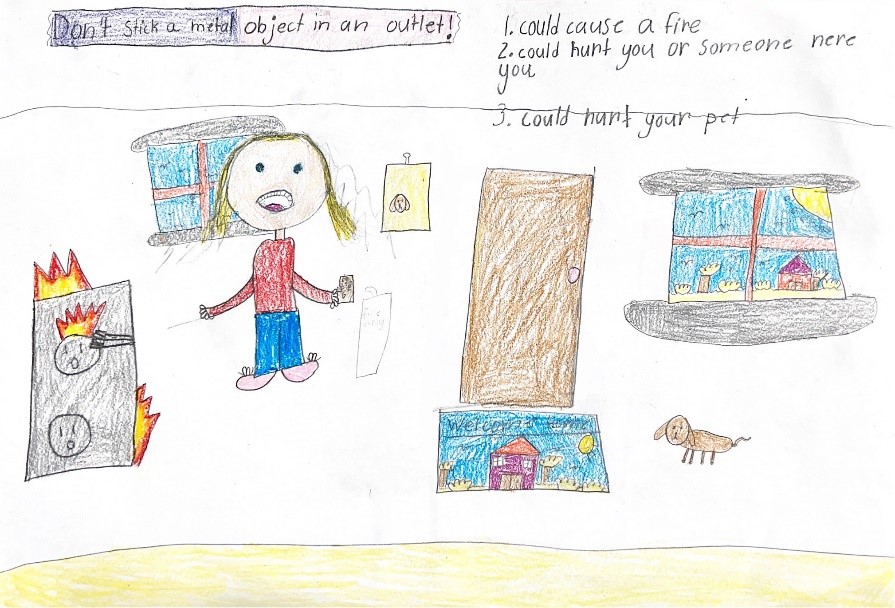 Don't stick a metal object in an outlet!
1. could cause a fire
2. could hurt you or someone nere
you
3. could hurt your pet
Welcome